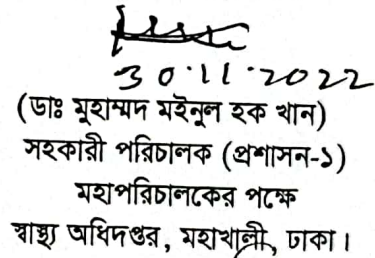 30.11.2022
(ডাঃ মুহাম্মদ মইনুল হক খান)
সহকারী পরিচালক (প্রশাসন-১)
মহাপরিচালকের পক্ষে
স্বাস্থ্য অধিদপ্তর, মহাখালী, ঢাকা।